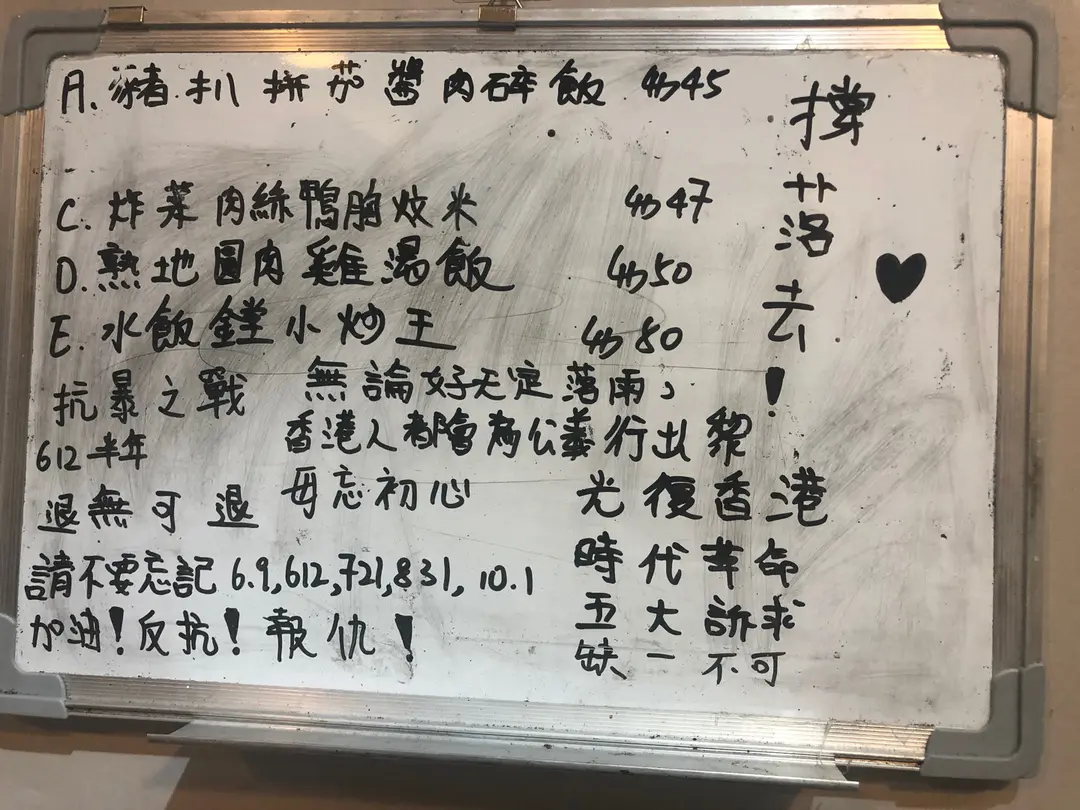 A. 豬扒拼茄醬肉碎飯 $45
C. 炸菜肉絲鴨胸炆米 $47
D. 熟地圓肉雞湯飯 $50
E. 水飯鏜小炒王 $80
撐落去!
抗暴之戰
612半年
退無可退
無論好天定落雨,
香港人都會為公義行出黎
毋忘初心
請不要忘記 6.9,612,721,831,10.1
加油!反抗!報仇!
光復香港
時代革命
五大訴求
缺一不可